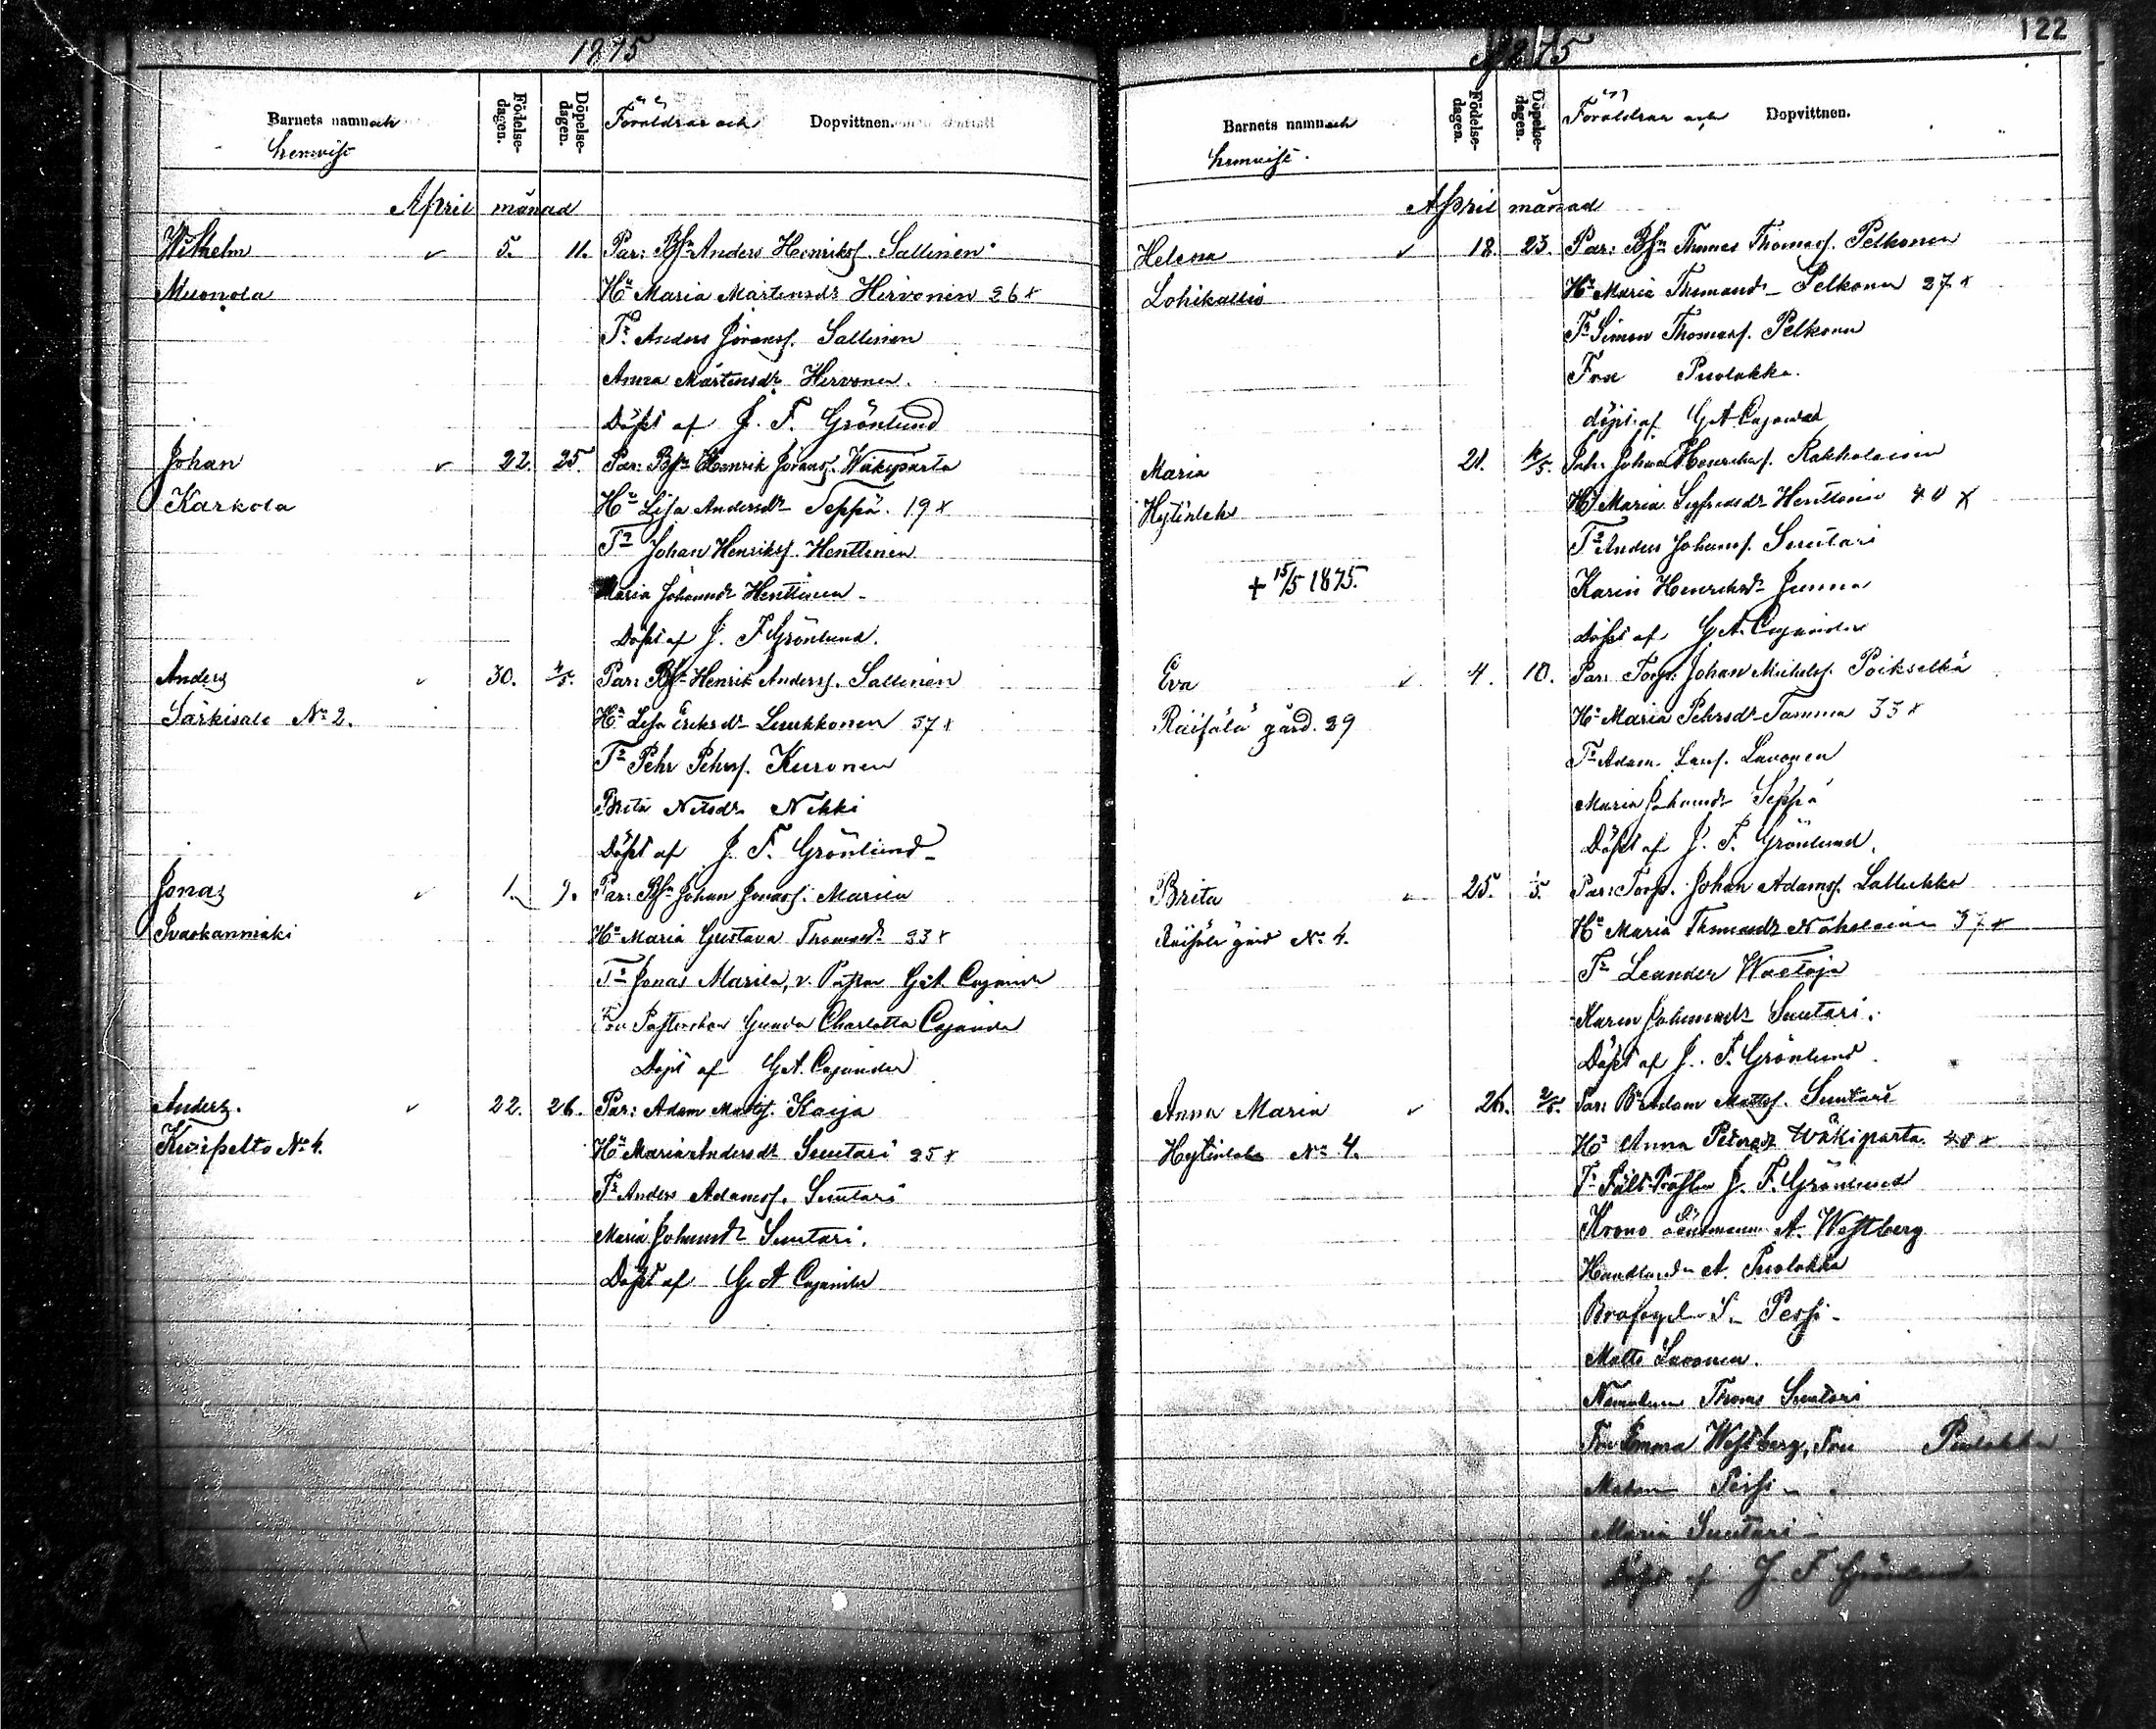 1875
Barnets namn och
hemvist
Födelse-
dagen.
Döpelse-
dagen.
Föräldrar och Dopvittnen.
April månad
Wilhelm 5. 11. Par: Bsn Anders Henriksf. Sallinen
Muonola Hu Maria Mårtensdr Hirvonen 26 x
Tr Anders Göransf. Sallinen
Anna Mårtensdr Hirvonen.
Döpt af J. F. Grönlund
Johan 22. 25. Par: Bsn Henrik Göransf. Wäkiparta
Karkola Hu Lisa Andersdr Seppä. 19 x
Tr Johan Henriksf. Henttinen
Maria Johansdr Henttinen
Döpt af J. F. Grönlund.
Anders 30. 4/5. Par: Bsn Henrik Andersf. Sallinen
Särkisalo No 2. Hu Lisa Eriksdr Luukkonen 37 x
Tr Pehr Pehrsf. Kuronen
Brita Nilsdr Nikki
Döpt af J. F. Grönlund
Jonas 1. 9. Par: Bsn Johan Jonasf. Marila
Ivaskanmäki Hu Maria Gustava Thomasdr 23 x
Tr Jonas Marila, v. Pastor G. A. Cajander
Fru Pastorskan Gunda Charlotta Cajander
Döpt af G. A. Cajander
Anders. 22. 26. Par: Adam Mattsf. Kaija
Kuispelto No 4. Hu Maria Andersdr Suutari 25 x
Tr Anders Adamsf. Suutari
Maria Johansdr Suutari.
Döpt af G. A. Cajander
122
1875
Barnets namn och
hemvist.
Födelse-
dagen.
Döpelse-
dagen.
Föräldrar och Dopvittnen.
April månad
Helena 18. 23. Par: Bsn Thomas Thomasf. Pelkonen
Lohikallio Hu Maria Thomasdr Pelkonen 27 x
Tr Simon Thomasf. Pelkonen
Fru Puolakka.
döpt af G. A. Cajander
Maria 21. 4/5. Johan Henriksf.
Hytinlaks Hu Maria Sigfridsdr Henttinen 40 x
+ 15/5 1875. Tr Anders Johansf. Suutari
Karin Henriksdr Junna
Döpt af G. A. Cajander
Eva 4. 10. Par: Torp. Johan Michelsf. Poikselkä
Räisälä gård. 29 Hu Maria Pehrsdr Tamma 33 x
Tr Adam Larsf. Lavonen
Maria Johansdr Seppä
Döpt af J. F. Grönlund.
Brita 25. Par: Torp. Johan Adamsf. Lallukka
Räisälä gård No 4. Hu Maria Thomasdr 37 x
Tr Leander Waetäja
Karin Johansdr Suutari.
Döpt af J. F. Grönlund.
Anna Maria 26. 2/5. Par: Bn Adam Mattsf. Suutari
Hytinlaks No 4. Hu Anna Petersdr Wäkiparta 40 x
Tr Fält Prosten J. F. Grönlund
Krono Länsmann A. Westberg
Handlanden A. Puolakka
Brofogden S. Pessi
Matts Lavonen.
Nämndeman Thomas Suutari
Fru Emma Westberg, Fru Puolakka
Pessi
Maria Suutari
Döpt af J. F. Grönlund